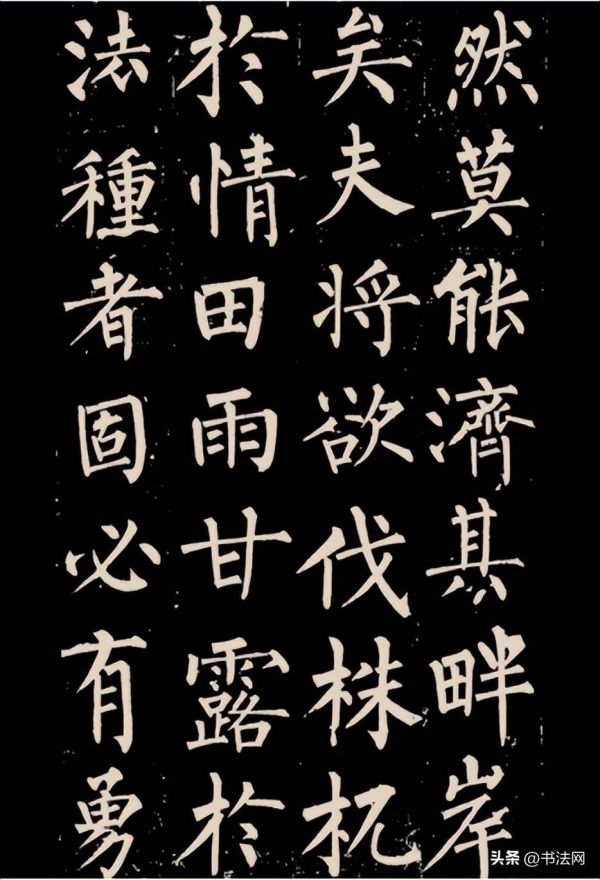 然莫能濟其畔岸
矣夫將欲伐株杌
於情田雨甘露於
法種者固必有勇
头条@书法网